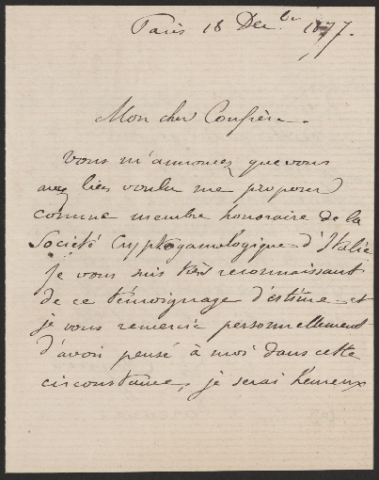 Paris 18 Dec.br 1877.
Mon cher Confrère.
Vous m'annoncez que vous
avez bien voulu me proposer
comme membre honoraire de la
Société Cryptogamologique d'Italie
je vous suis très reconnaissant
de ce témoignage d'estime et
je vous remercie personnellement
d'avoir pensé à moi dans cette
circonstance, je serai heureux